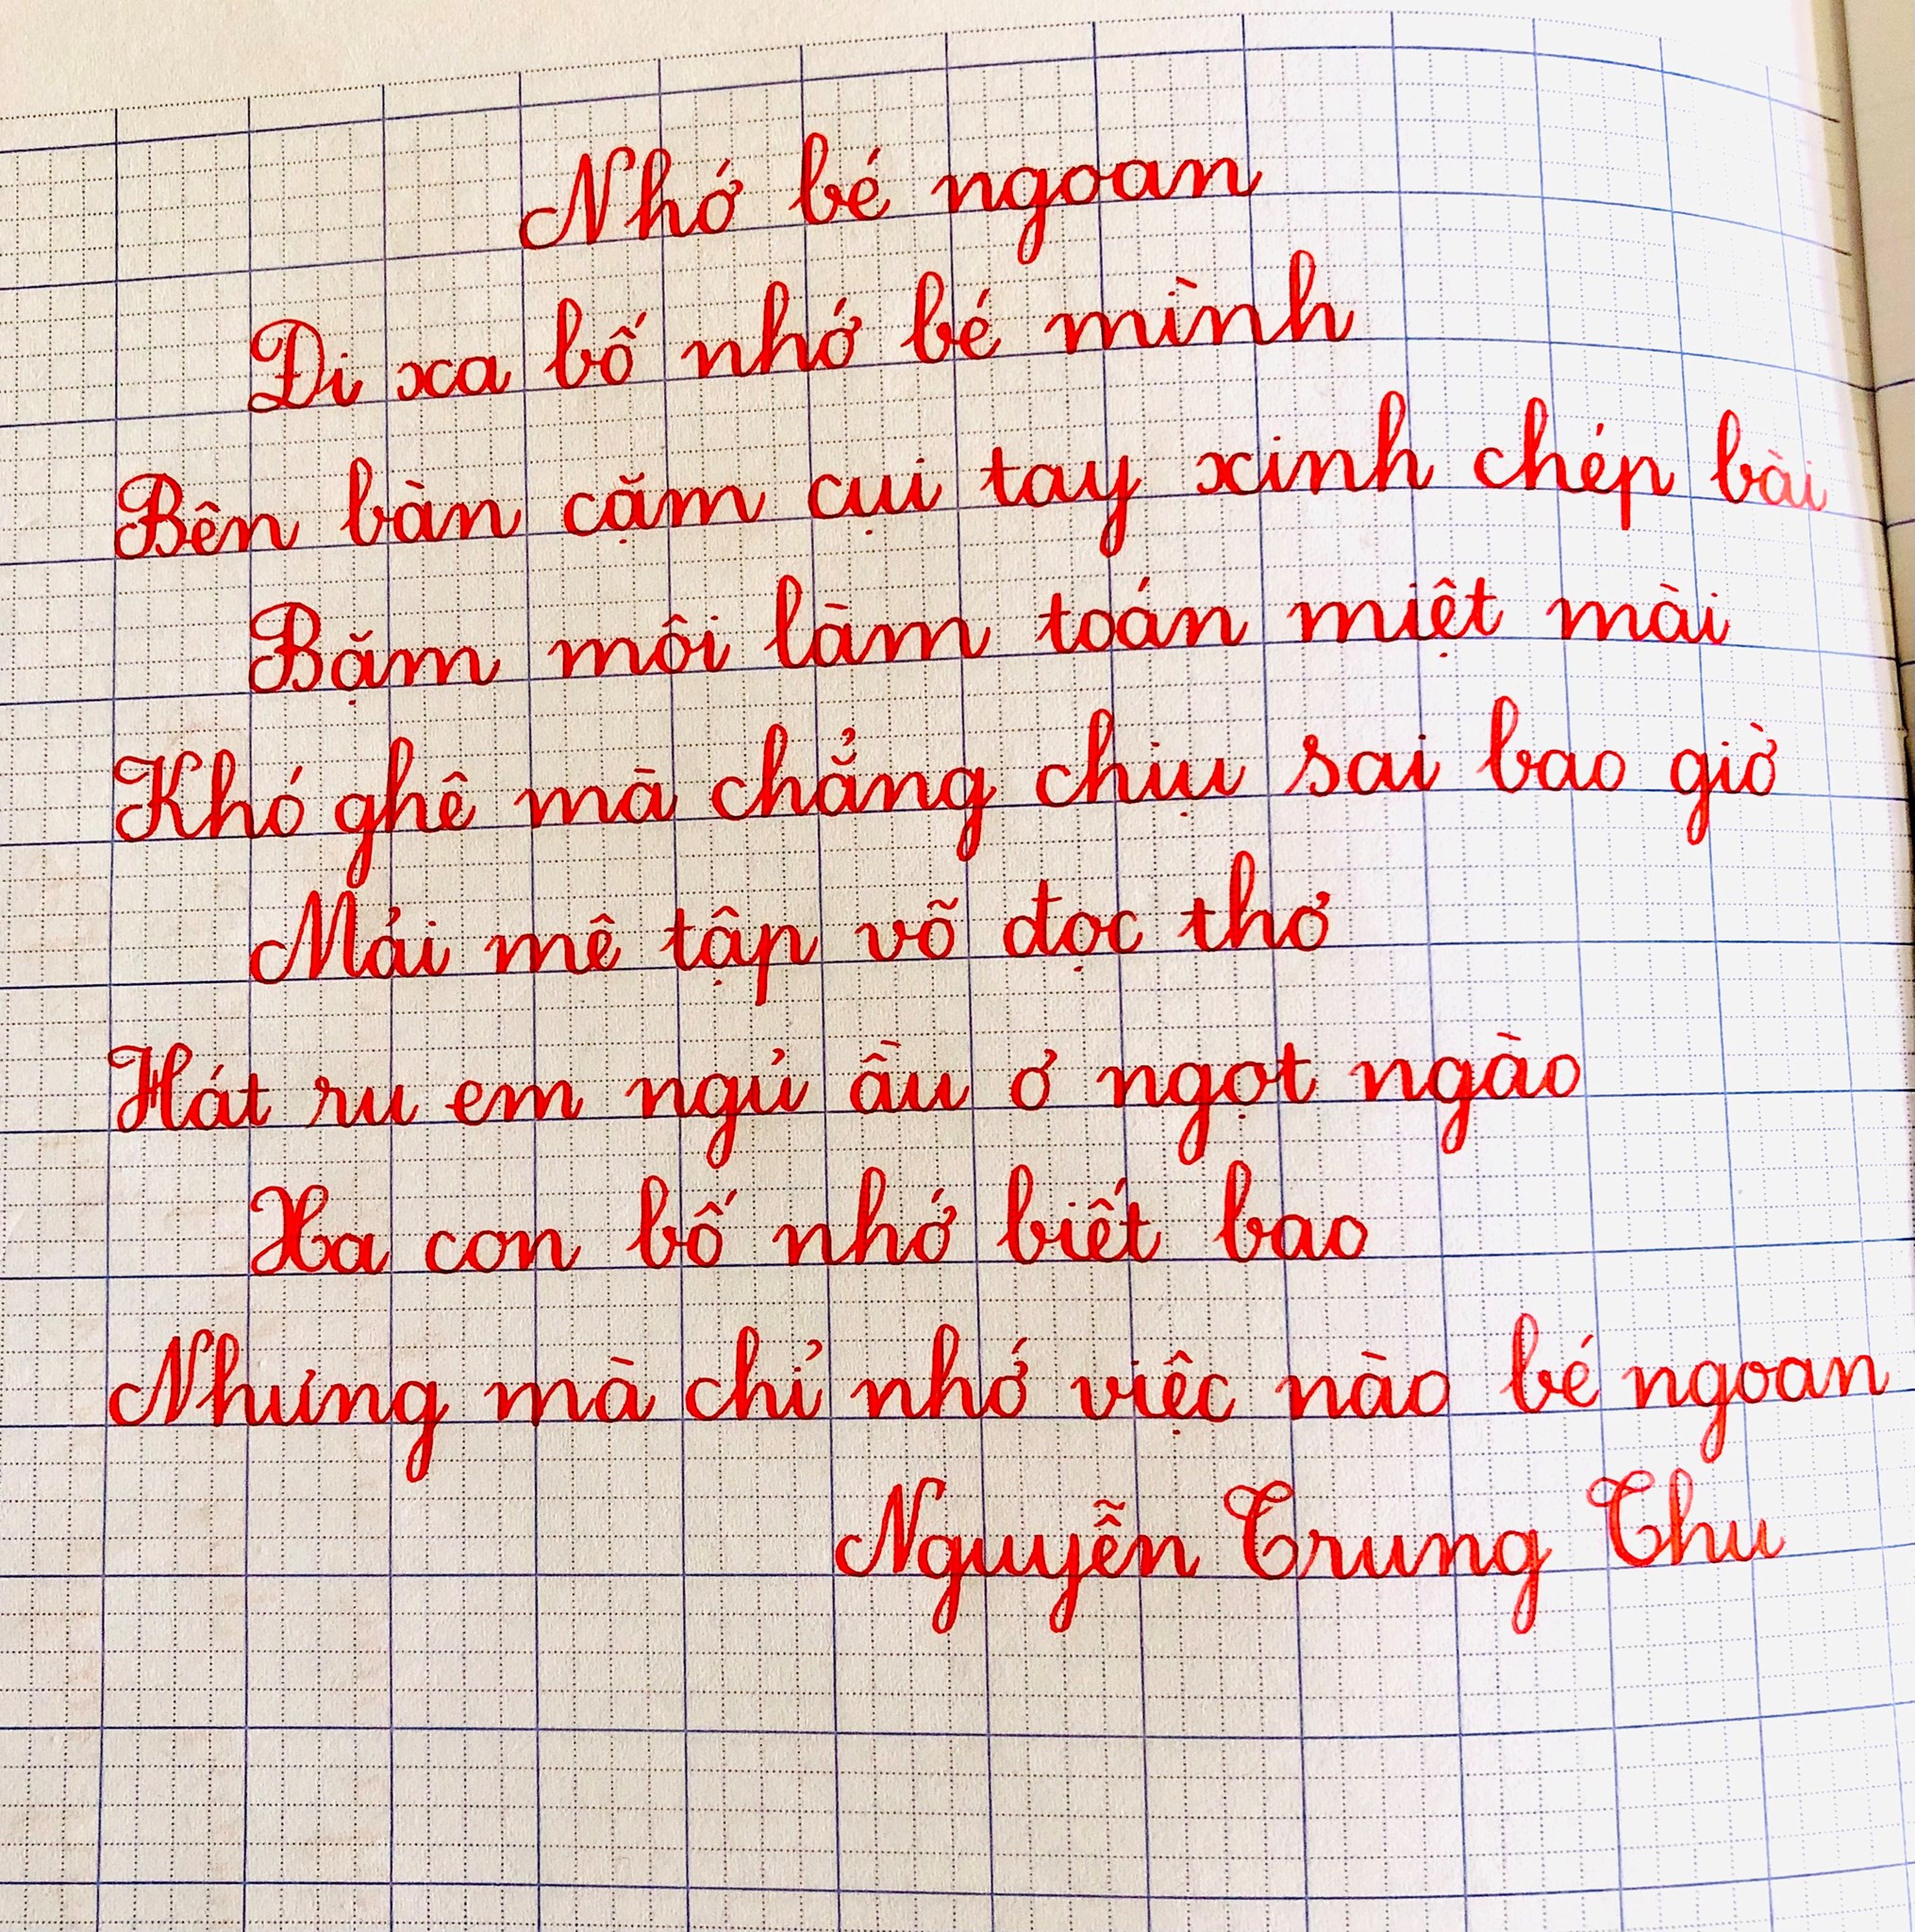 Nhớ bé ngoan
Đi xa bố nhớ bé mình
Bên bàn cặm cụi tay xinh chép bài
Bặm môi làm toán miệt mài
Khó ghê mà chẳng chịu sai bao giờ
Mải mê tập võ đọc thơ
Hát ru em ngủ ầu ơ ngọt ngào
Xa con bố nhớ biết bao
Nhưng mà chỉ nhớ việc nào bé ngoan
Nguyễn Trung Thu